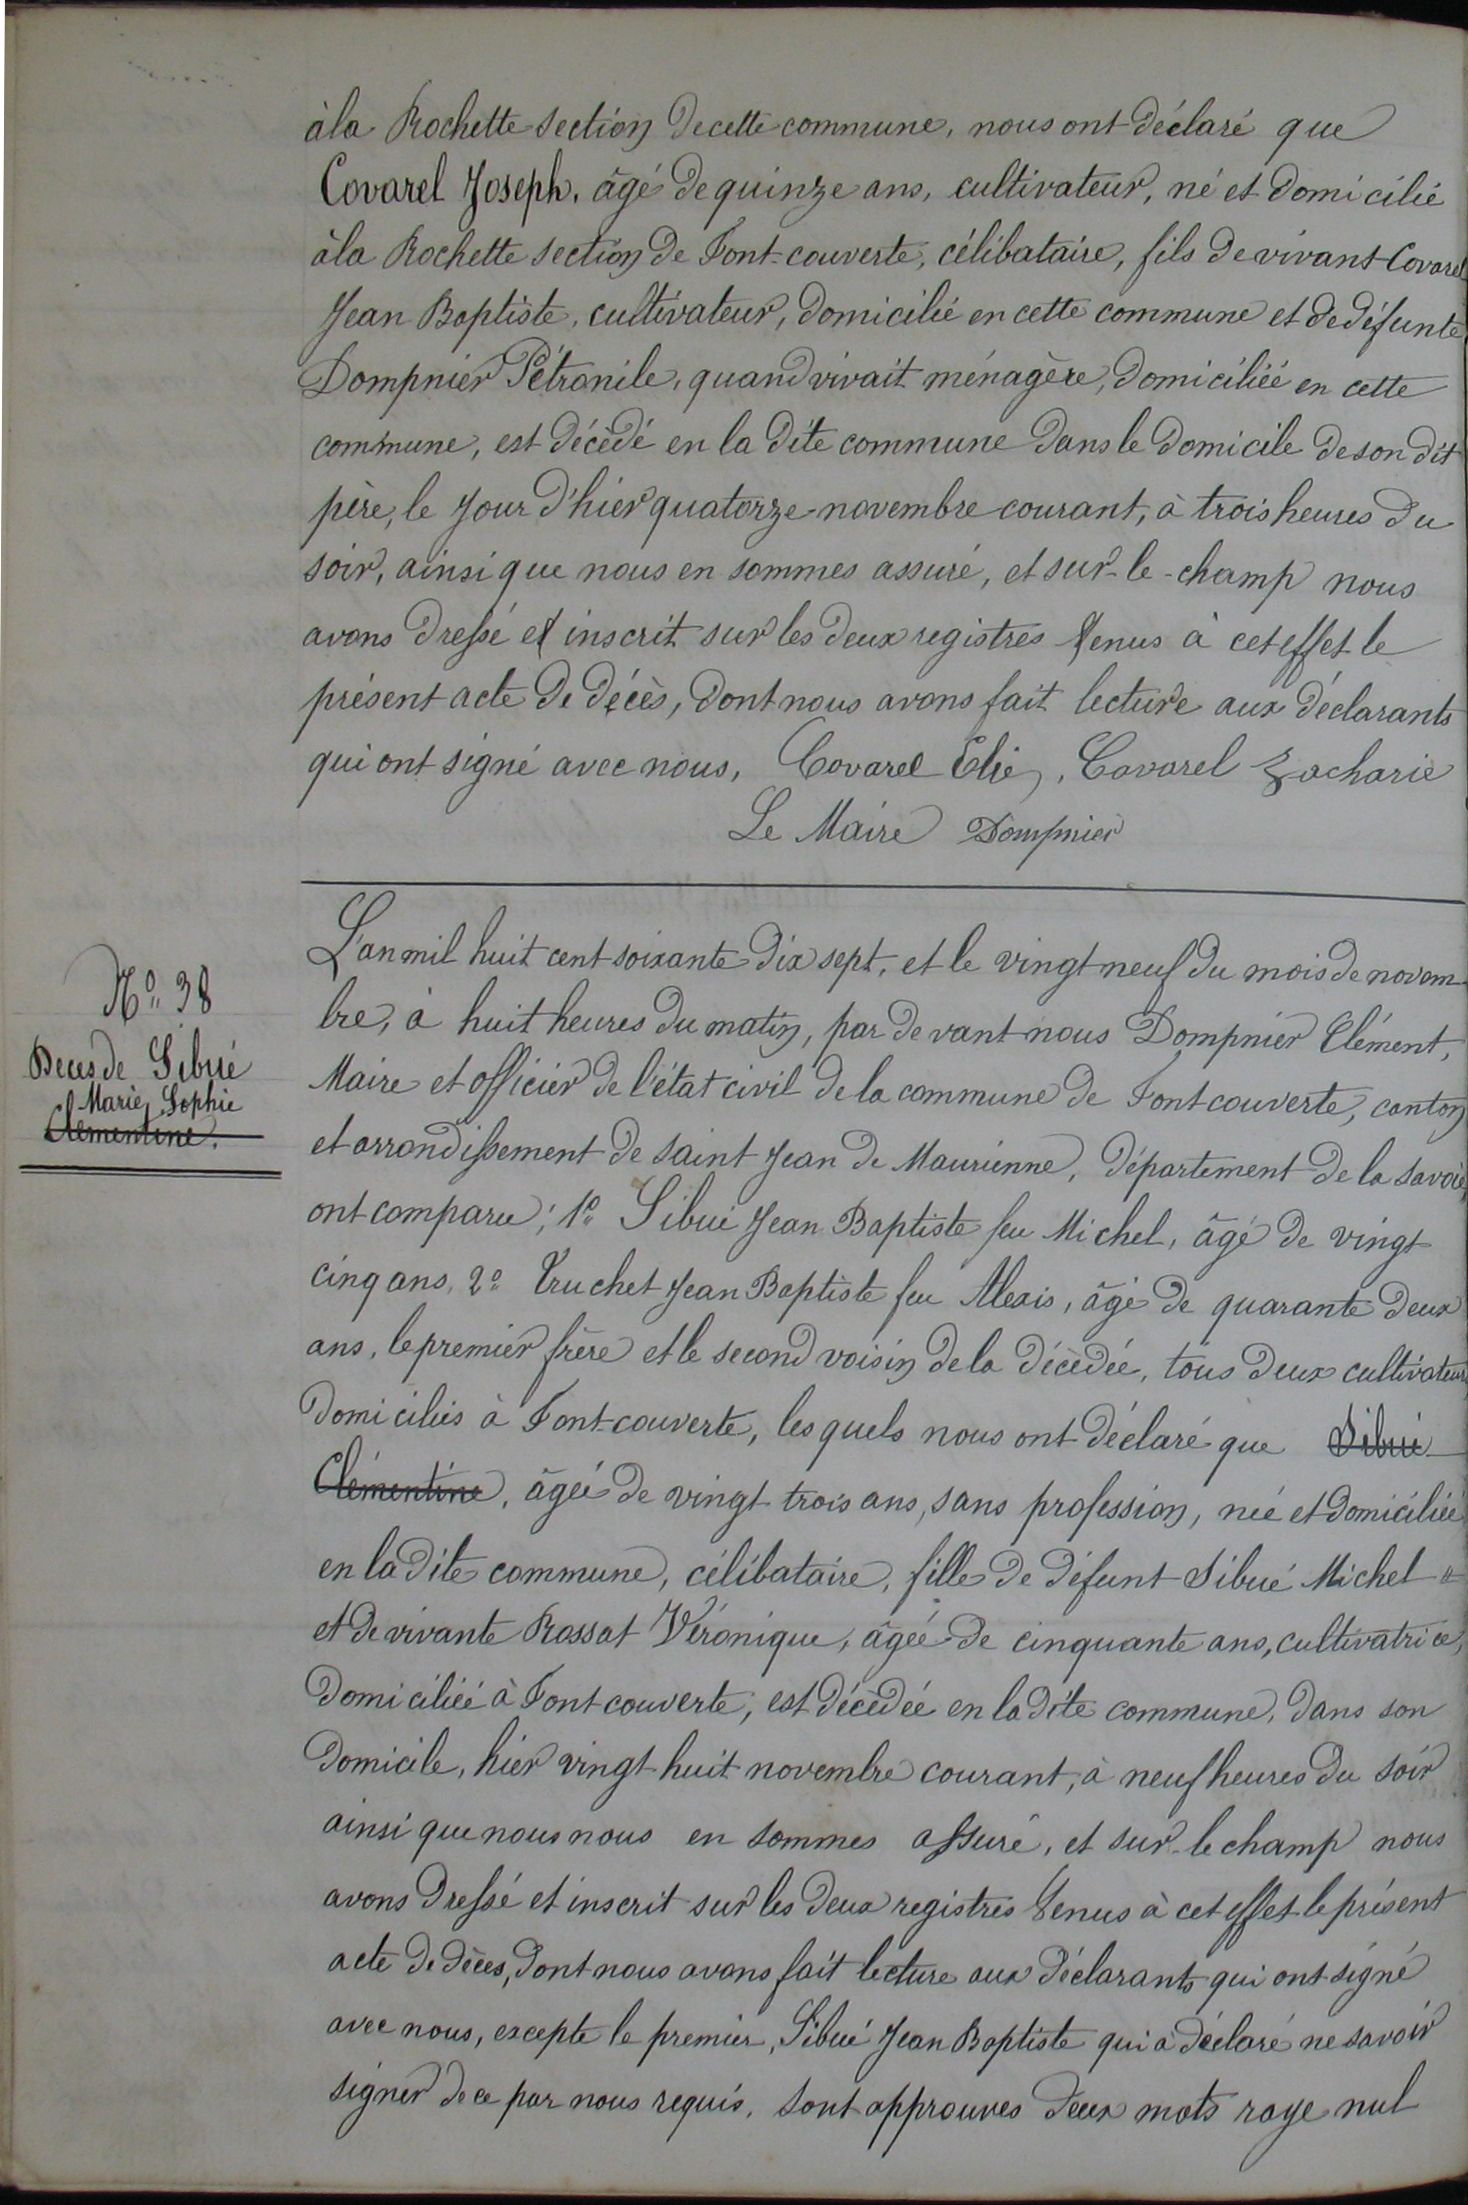 à la Rochette section de cette commune, nous ont déclaré que
Covarel Joseph, âgé de quinze ans, cultivateur, né et domicilié
à la Rochette section de Font-couverte, célibataire, fils de vivant Covarel
Jean Baptiste, cultivateur, domicilié en cette commune et de défunte
Dompnier Pétronile, quand vivait ménagère, domiciliée en cette
commune, est décédé en la dite commune dans le domicile de son dit
père, le jour d'hier quatorze novembre courant, à trois heures du
soir, ainsi que nous en sommes assuré, et sur-le-champ nous
avons dressé et inscrit sur les deux registres tenus à cet effet le
présent acte de décès, dont nous avons fait lecture aux déclarants
qui ont signé avec nous, Covarel Elie, Covarel Zacharie
Le Maire Dompnier
L'an mil huit cent soixante dix sept, et le vingt neuf du mois de novem-
bre, à huit heures du matin, par devant nous Dompnier Clément,
Maire et officier de l'état civil de la commune de Fontcouverte, canton
et arrondissement de saint Jean de Maurienne, département de la savoie
ont comparu; 1º Sibué Jean Baptiste feu Michel, âgé de vingt
cinq ans, 2º Truchet Jean Baptiste feu Alexis, âgé de quarante deux
ans, le premier frère et le second voisin de la décédée, tous deux cultivateurs
domiciliés à Font-couverte, lesquels nous ont déclaré que Sibué
Clémentine, âgée de vingt trois ans, sans profession, née et domiciliée
en la dite commune, célibataire, fille de défunt Sibué Michel
et de vivante Rossat Véronique, âgée de cinquante ans, cultivatrice,
domiciliée à Font couverte, est décédée en la dite commune, dans son
domicile, hier vingt-huit novembre courant, à neuf heures du soir
ainsi que nous nous en sommes assuré, et sur-le champ nous
avons dressé et inscrit sur les deux registres tenus à cet effet le présent
acte de décès, dont nous avons fait lecture aux déclarants qui ont signé
avec nous, excepte le premier, Sibué Jean Baptiste qui a déclaré ne savoir
signer de ce par nous requis. Sont approuves deux mots raye nul
Nº 38
Deces de Sibué
Marie, Sophie
Clementine.